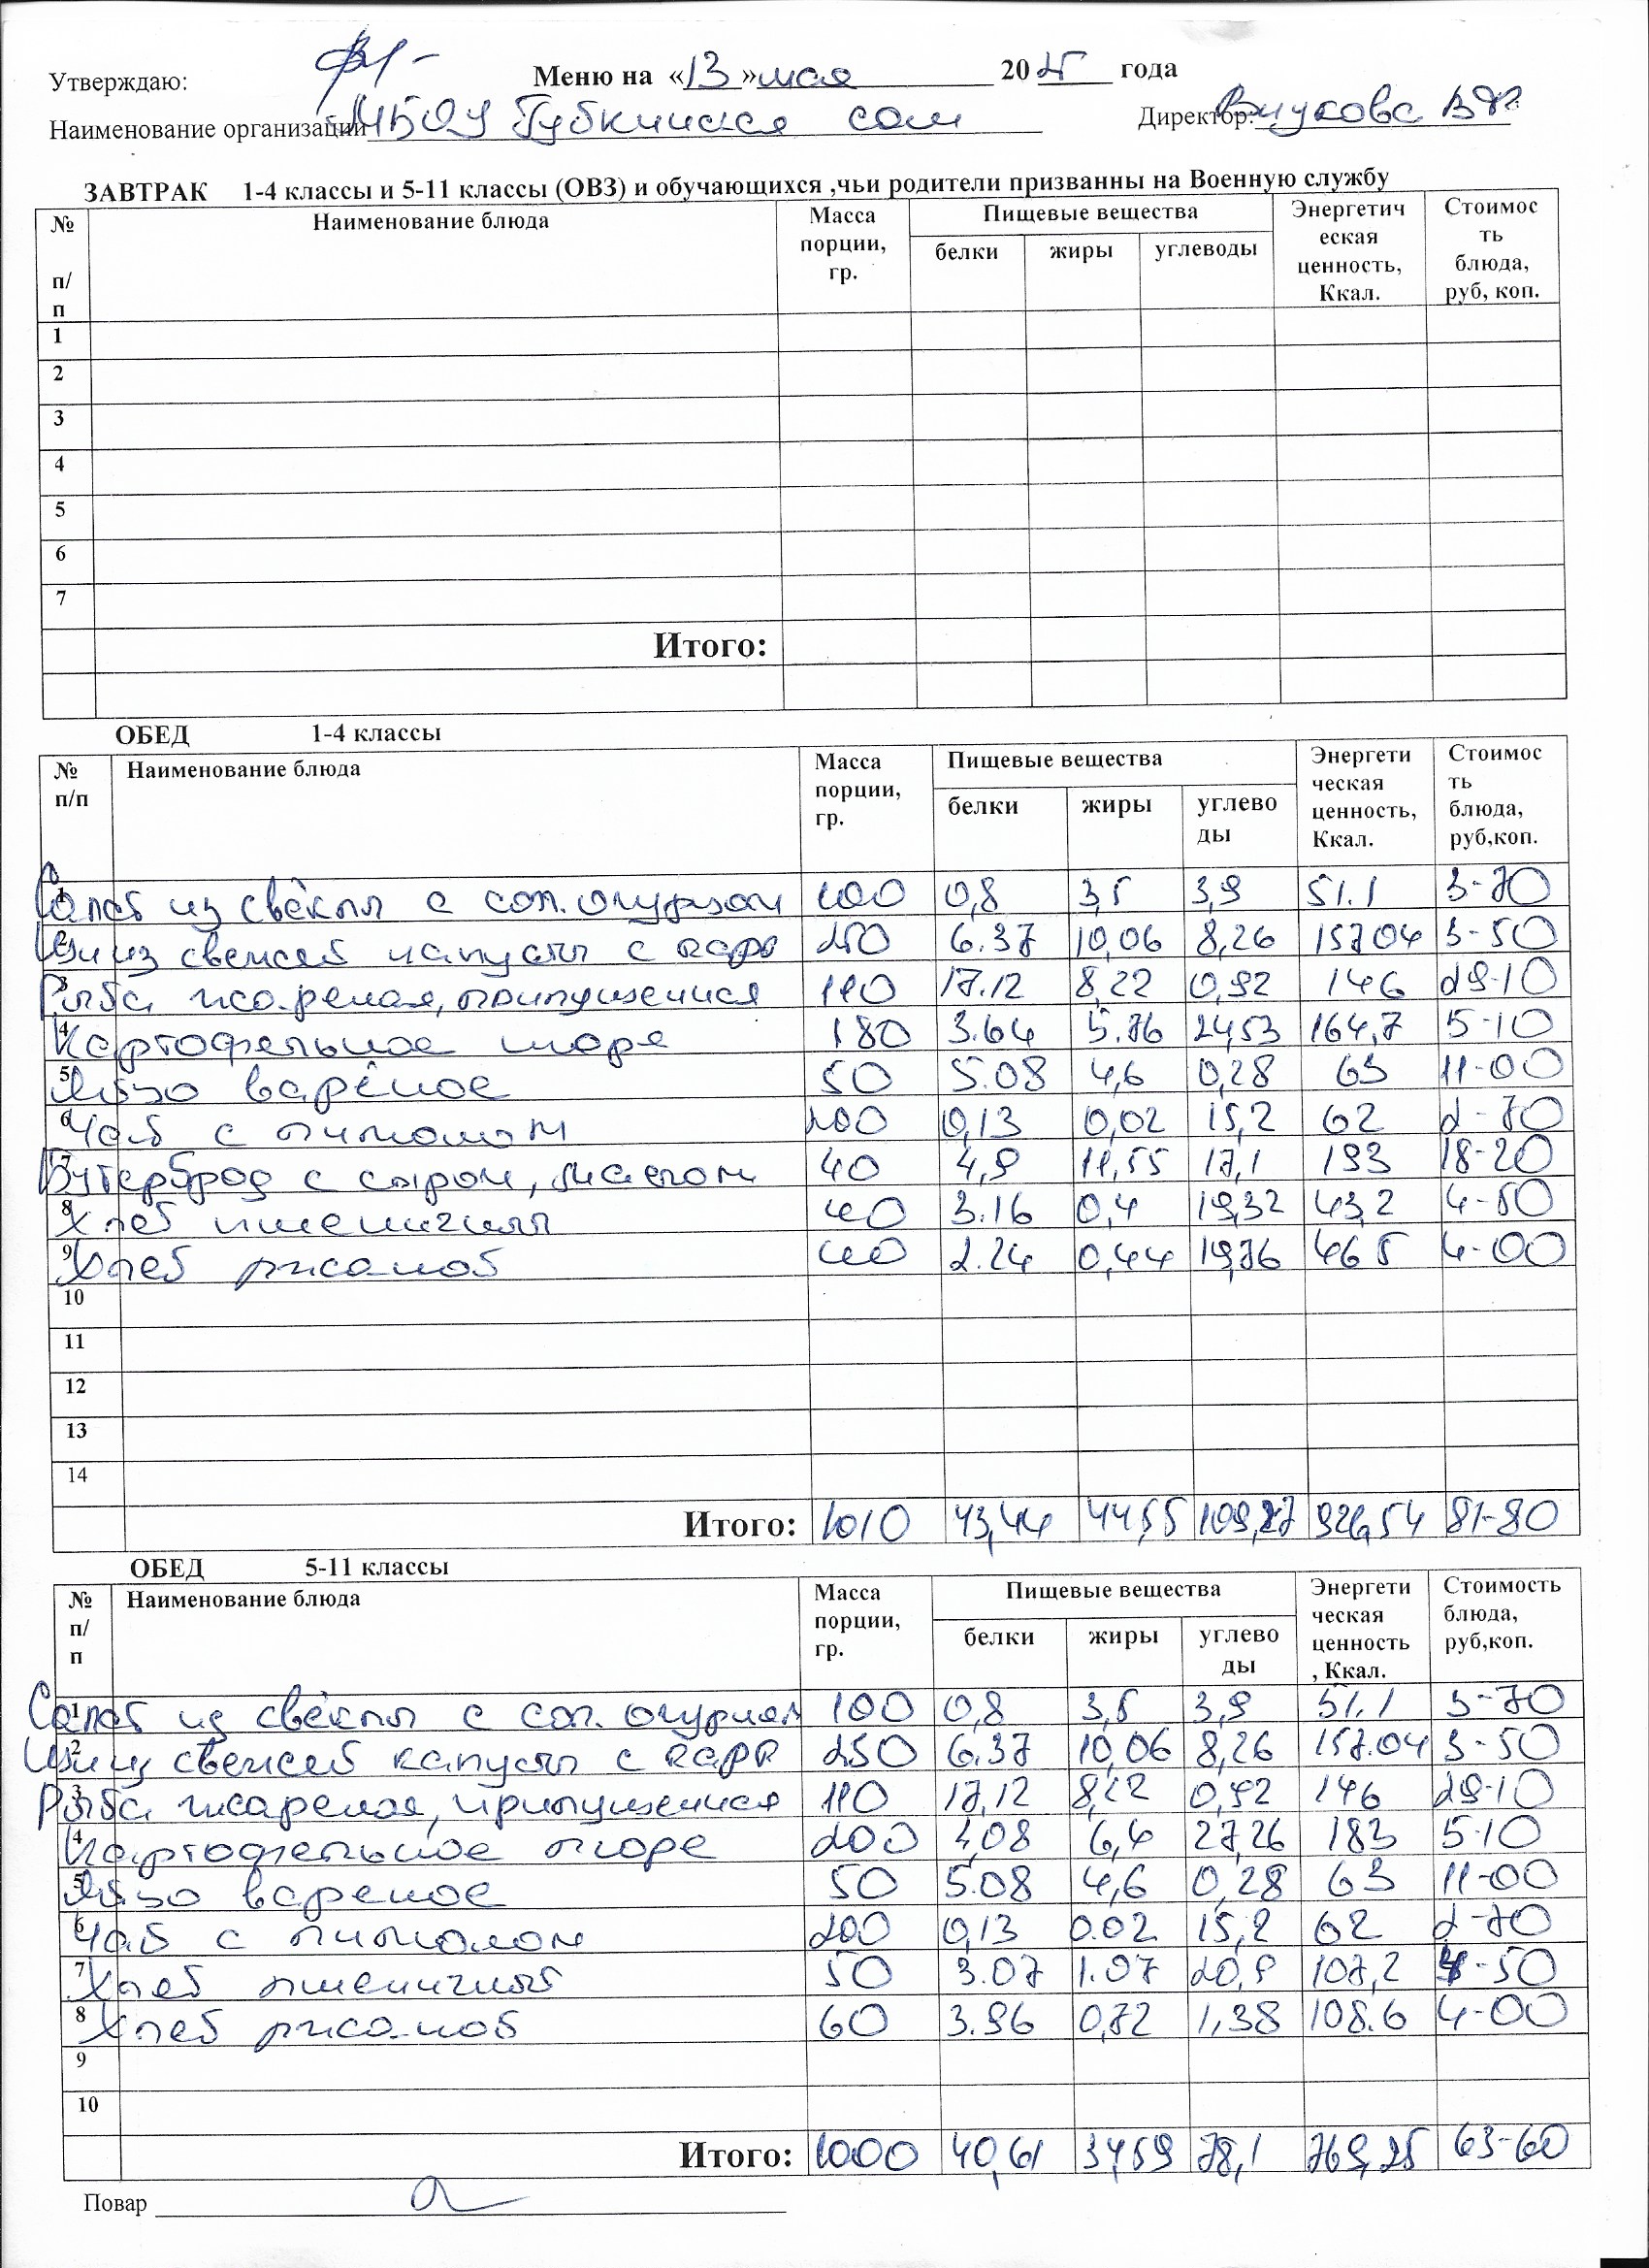 Утверждаю:
Меню на «13» мая 2025 года
Наименование организации МБОУ Губкинская сош Директор: Внукова В.Ф.
ЗАВТРАК 1-4 классы и 5-11 классы (ОВЗ) и обучающихся ,чьи родители призванны на Военную службу
№ п/п Наименование блюда Масса порции, гр. Пищевые вещества Энергетическая ценность, Ккал. Стоимость блюда, руб, коп.
белки жиры углеводы
1
2
3
4
5
6
7
Итого:
ОБЕД 1-4 классы
№ п/п Наименование блюда Масса порции, гр. Пищевые вещества Энергетическая ценность, Ккал. Стоимость блюда, руб,коп.
белки жиры углеводы
1 Салат из свёклы с сол. огурцом 100 0,8 3,5 3,9 51.1 3-70
2 Щи из свежей капусты с карт 250 6.37 10,06 8,26 157.04 3-50
3 Рыба жареная, припущенная 110 17.12 8,22 0,92 146 29-10
4 Картофельное пюре 180 3.64 5.76 24,53 164,7 5-10
5 Яйцо варёное 50 5.08 4,6 0,28 63 11-00
6 Чай с лимоном 200 0,13 0,02 15,2 62 2-70
7 Бутерброд с сыром, маслом 40 4,9 11,55 17,1 193 18-20
8 Хлеб пшеничный 40 3.16 0,4 19,32 43,2 4-50
9 Хлеб ржаной 40 2.24 0,44 19,76 46 5 4-00
10
11
12
13
14
Итого: 1010 43,44 44,55 109,27 926,54 81-80
ОБЕД 5-11 классы
№ п/п Наименование блюда Масса порции, гр. Пищевые вещества Энергетическая ценность, Ккал. Стоимость блюда, руб,коп.
белки жиры углеводы
1 Салат из свёклы с сол. огурцом 100 0,8 3,5 3,9 51.1 3-70
2 Щи из свежей капусты с карт 250 6.37 10,06 8,26 157.04 3-50
3 Рыба жареная, припущенная 110 17,12 8,22 0,92 146 29-10
4 Картофельное пюре 200 4,08 6,4 27,26 183 5-10
5 Яйцо вареное 50 5.08 4,6 0,28 63 11-00
6 Чай с лимоном 200 0,13 0.02 15,2 62 2-70
7 Хлеб пшеничный 50 3.07 1.07 20,9 107,2 4-50
8 Хлеб ржаной 60 3.96 0,72 1,38 108.6 4-00
9
10
Итого: 1000 40,61 34,59 78,1 769,25 63-60
Повар